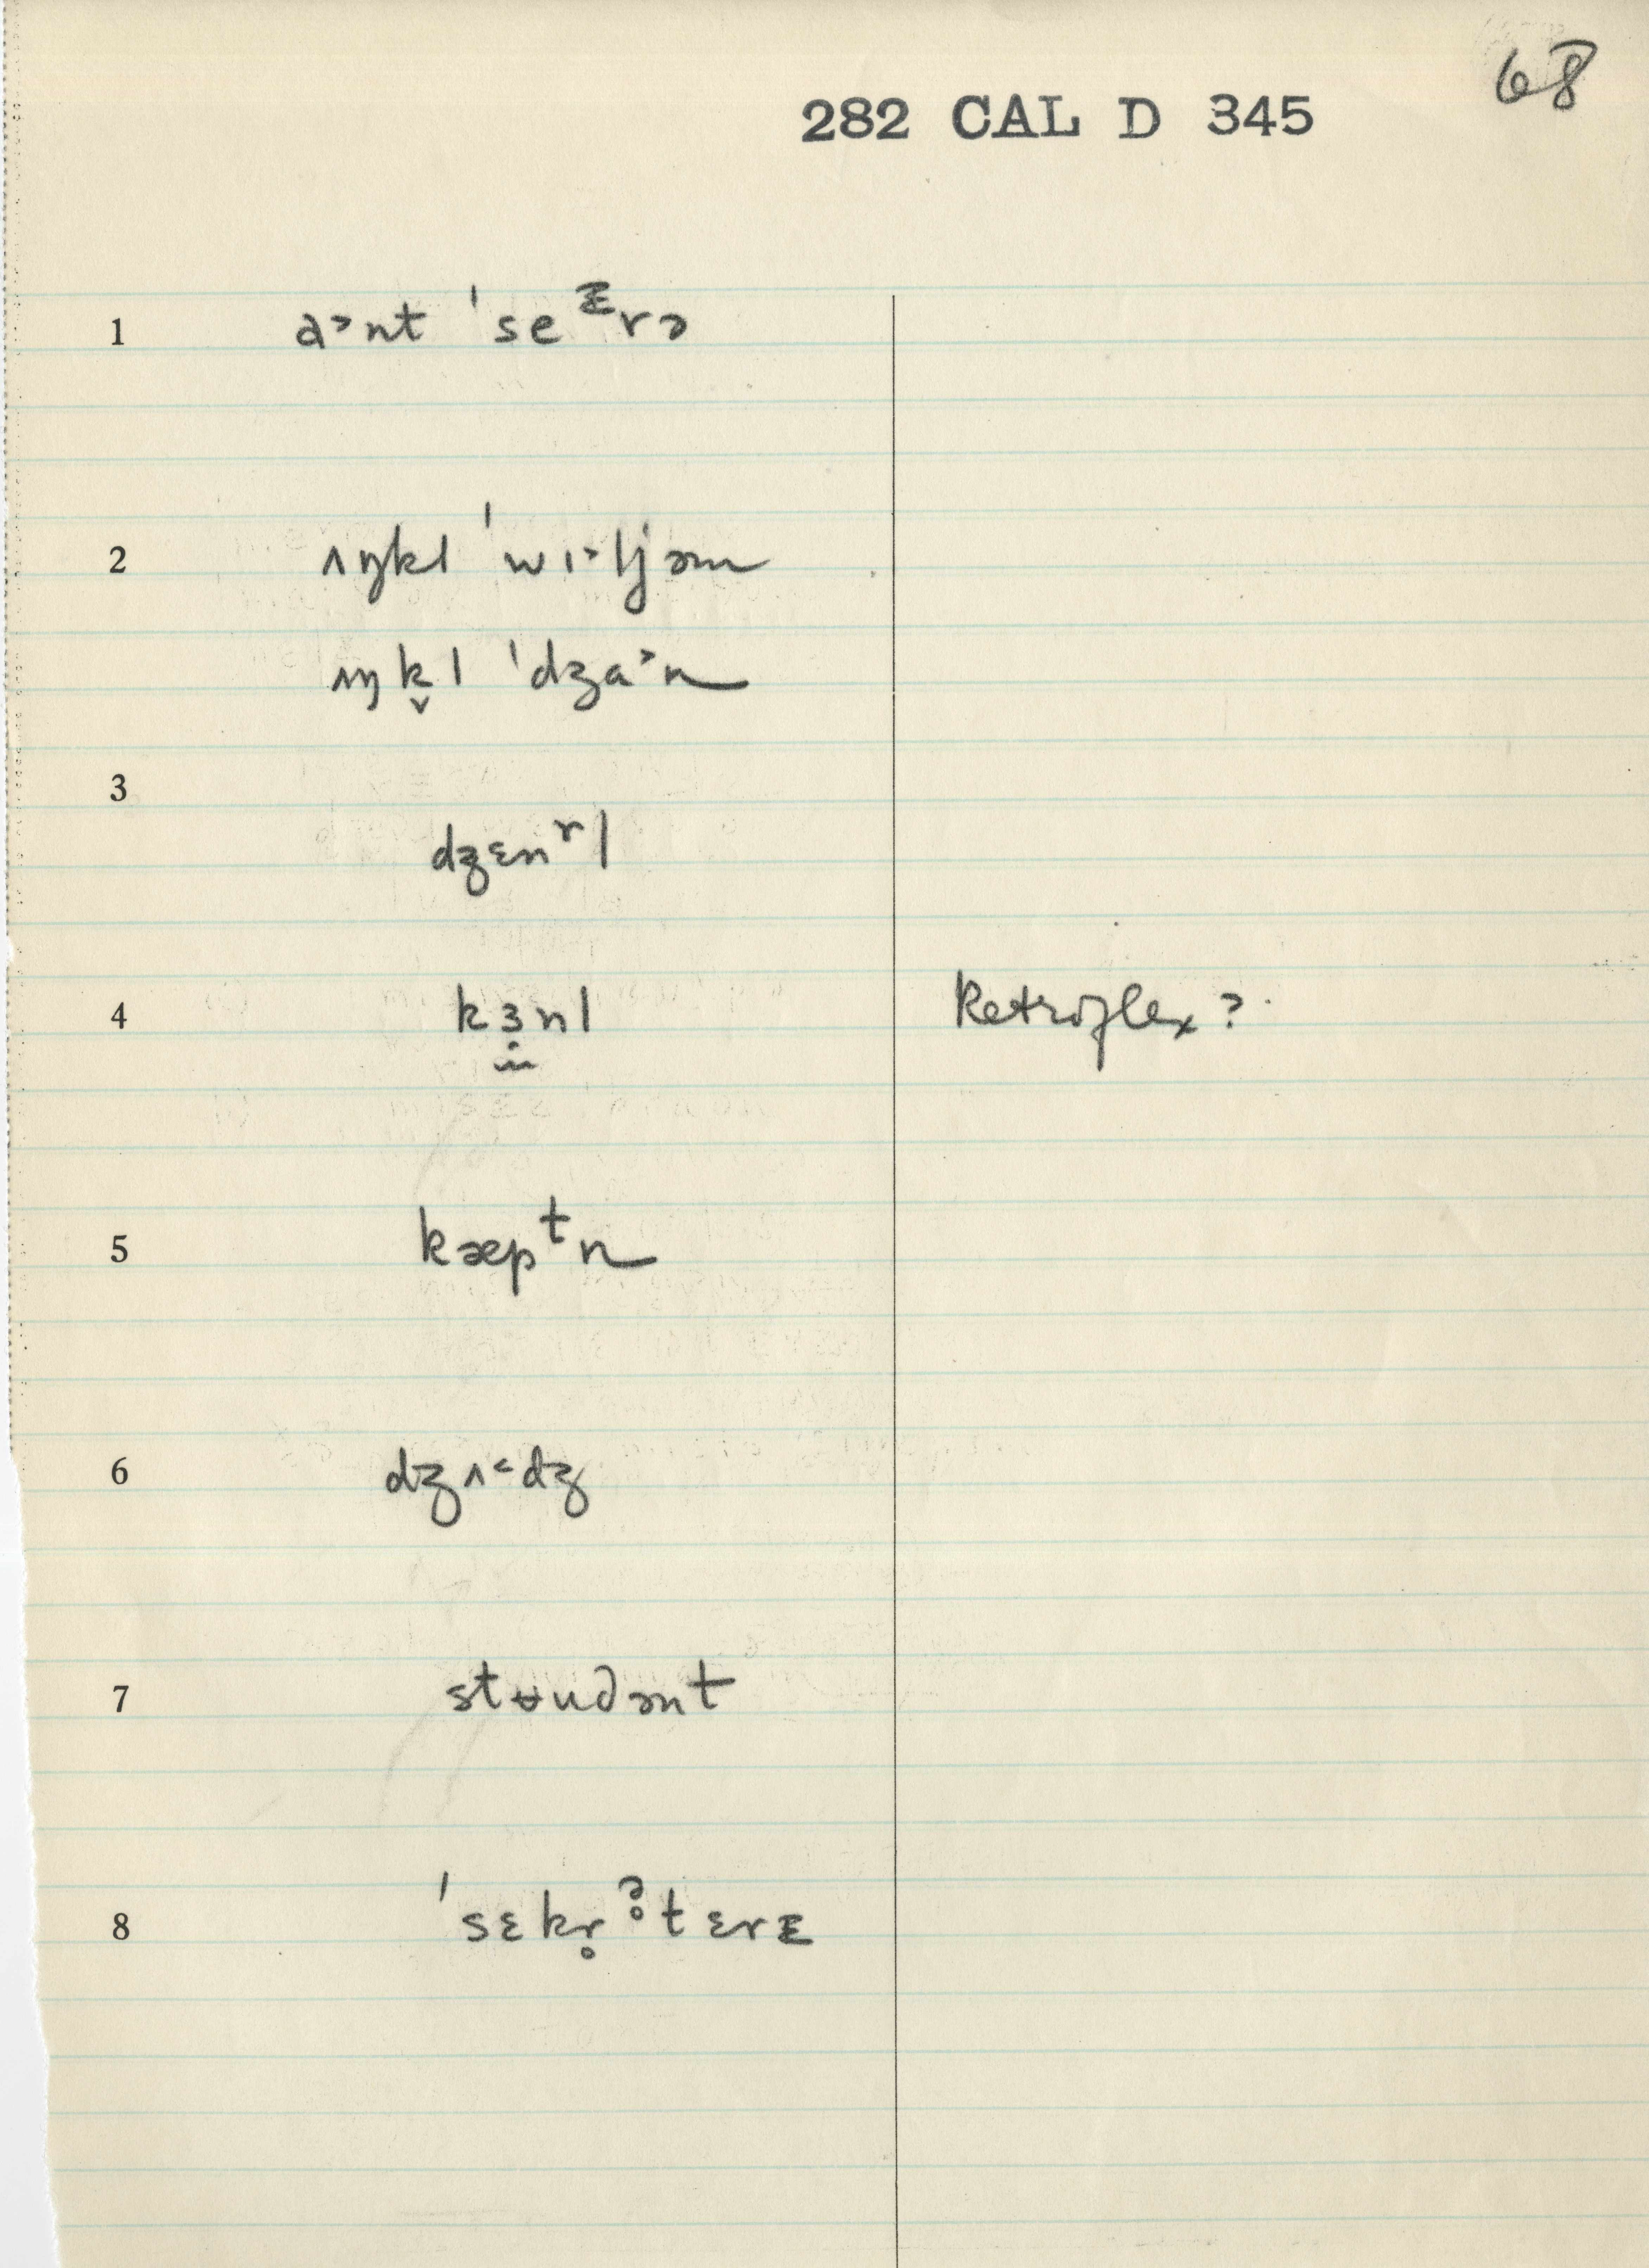 68
282 CAL D 345
1 a˃nt ˈseᴱrə
2 ʌŋkl ˈwɪ˃ljəm
ʌŋk̬l ˈdʒa˃n
3
dʒɛnʳl
4 kɜ̣nl Retroflex?
5 kæpᵗn
6 dʒʌ˂dʒ
7 stʉudənt
8 ˈsɛkr̥ᵊ̥tɛrᴇ